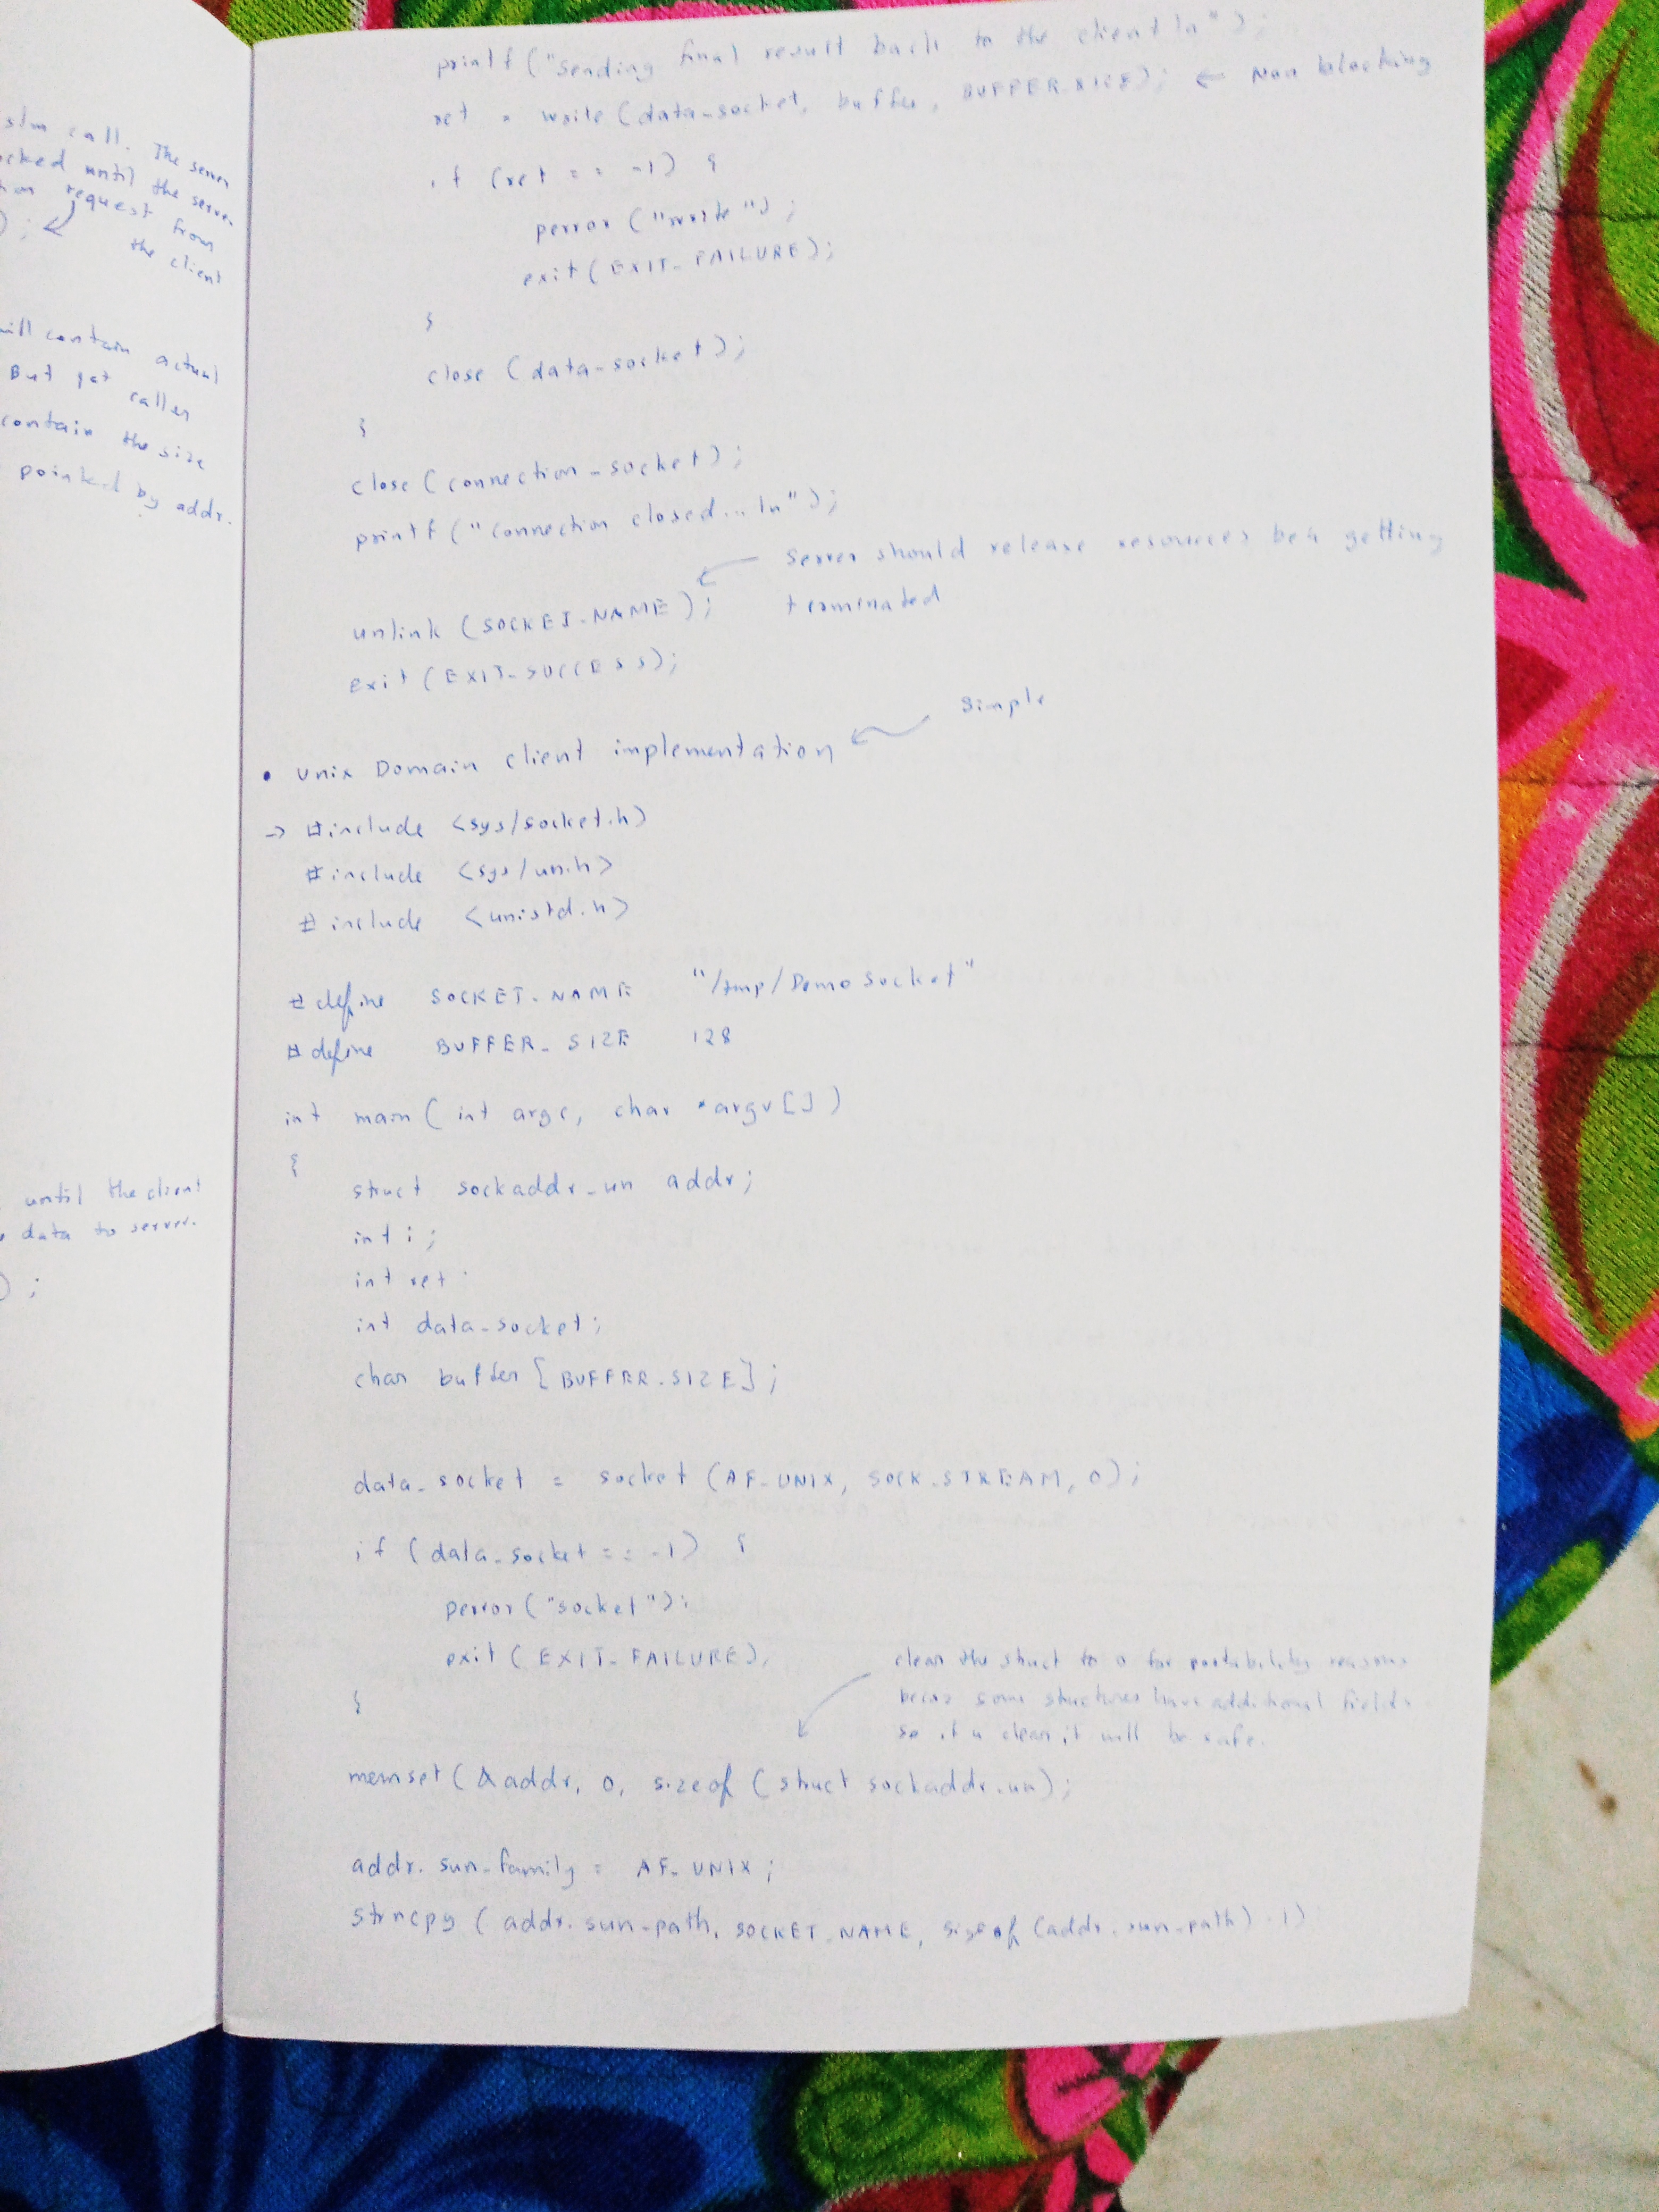 slm call. The server
ocked until the server
request from
the client
) ;
will contain actual
But yet caller
contain the size
pointed by addr.
until the client
data to server.
) ;
printf ("sending final result back to the client \n" );
ret = write (data_socket, buffer, BUFFER_SIZE); ← Non blocking
if (ret == -1) {
perror ("write");
exit (EXIT_FAILURE);
}
close (data_socket);
}
close (connection_socket);
printf ("connection closed... \n");
server should release resources be4 getting
unlink (SOCKET_NAME); terminated
exit (EXIT_SUCCESS);
simple
• Unix Domain client implementation
→ #include <sys/socket.h>
#include <sys/un.h>
#include <unistd.h>
#define SOCKET_NAME "/tmp/DemoSocket"
#define BUFFER_SIZE 128
int main( int argc, char *argv[])
{
struct sockaddr_un addr;
int i;
int ret;
int data_socket;
char buffer [BUFFER_SIZE];
data_socket = socket (AF_UNIX, SOCK_STREAM, 0);
if (data_socket == -1) {
perror ("socket");
exit (EXIT_FAILURE);
clean the struct to 0 for portability reasons
} becoz some structures have additional fields
so if u clean it will be safe.
memset (&addr, 0, sizeof (struct sockaddr_un);
addr.sun_family = AF_UNIX;
strncpy (addr.sun_path, SOCKET_NAME, sizeof (addr.sun_path) - 1)